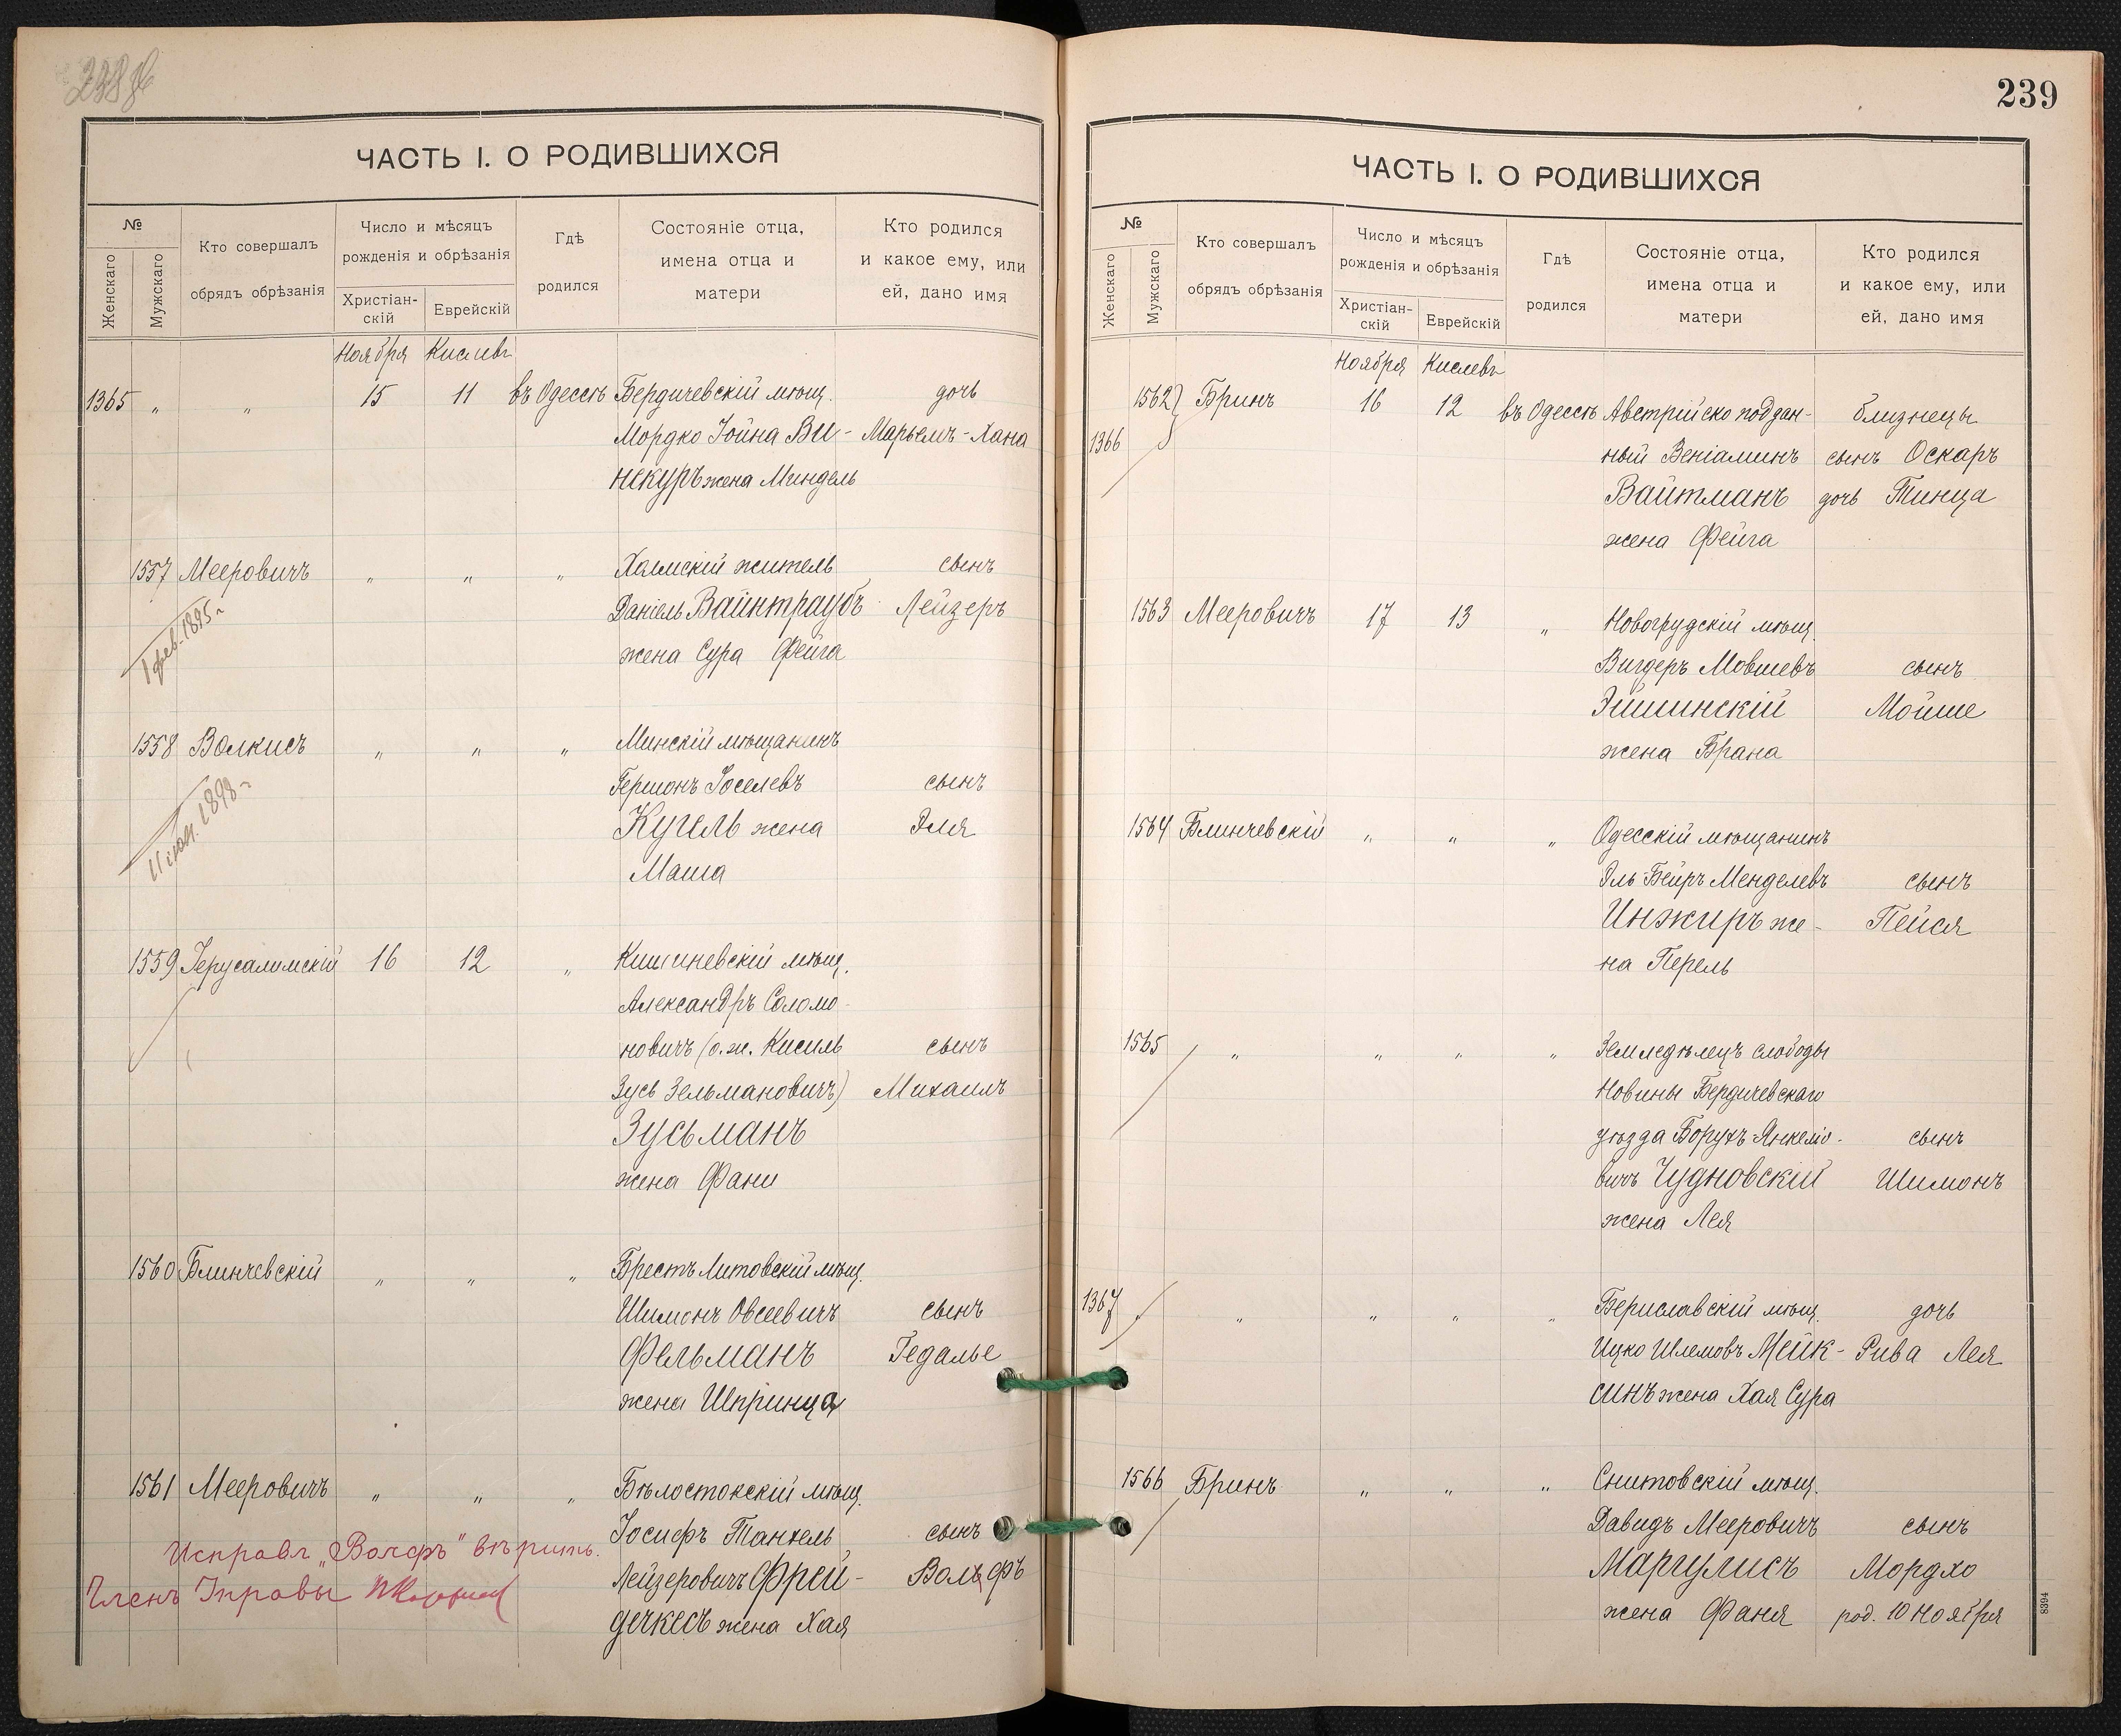 ЧАСТЬ I. О РОДИВШИХСЯ
№
Женскаго
Мужскаго
Кто совершалъ
обрядъ обрѣзанія
Число и мѣсяцъ
рожденія и обрѣзанія
Христіан-
скій
Еврейскій
Гдѣ
родился
Состояніе отца,
имена отца и
матери
Кто родился
и какое ему, или
ей, дано имя
Ноября Кислевъ
1365 „ „ 15 11 въ Одессѣ Бердичевскій мѣщ. дочь
Мордко Іойна Ви- Марьемъ-Хана
некуръ жена Миндель
1557 Мееровичъ „ „ „ Хаимскій житель сынъ
Даніель Вайнтраубъ Лейзеръ
жена Сура Фейга
1 фев. 1895 г
1558 Волкисъ „ „ „ Минскій мѣщанинъ
Гершонъ Іоселевъ сынъ
Кугель жена Эля
Маша
1898 г
1559 Іерусалимскій 16 12 „ Кишиневскій мѣщ.
Александръ Соломо-
новичъ (о.ж. Кисиль сынъ
Зусь Зельмановичъ) Михаилъ
Зусьманъ
жена Фани
1560 Блинчевскій „ „ „ Брестъ Литовскій мѣщ.
Шимонъ Овсеевичъ сынъ
Фельманъ Гедалье
жена Шпринца
1561 Мееровичъ „ „ „ Бѣлостокскій мѣщ.
Іосифъ Танхель сынъ
Лейзеровичъ Фрей- Вольфъ
дечкесъ жена Хая
Исправл „Волфъ" вѣрить.
Членъ Управы
239
ЧАСТЬ I. О РОДИВШИХСЯ
№
Женскаго
Мужскаго
Кто совершалъ
обрядъ обрѣзанія
Число и мѣсяцъ
рожденія и обрѣзанія
Христіан-
скій
Еврейскій
Гдѣ
родился
Состояніе отца,
имена отца и
матери
Кто родился
и какое ему, или
ей, дано имя
Ноября Кислевъ
1562 Бринъ 16 12 въ Одессѣ Австрійско поддан- близнецы
1366 ный Веніаминъ сынъ Оскаръ
Вайтманъ дочь Тинца
жена Фейга
1563 Мееровичъ 17 13 „ Новогрудскій мѣщ.
Вигдеръ Мовшевъ сынъ
Эйшинскій Мойше
жена Брана
1564 Блинчевскій „ „ „ Одесскій мѣщанинъ
Эль Бейръ Менделевъ сынъ
Инжиръ же- Пейся
на Перель
1565 „ „ „ „ Земледѣлецъ слободы
Новины Бердичевскаго
уѣзда Борухъ Янкелю- сынъ
вичъ Чудновскій Шимонъ
жена Лея
1367 „ „ „ „ „ Бериславскій мѣщ. дочь
Ицко Шлемовъ Мейк- Рива Лея
синъ жена Хая Сура
1566 Бринъ „ „ „ Снитовскій мѣщ.
Давидъ Мееровичъ сынъ
Маргулисъ Мордхо
жена Фаня род. 10 Ноября
8394